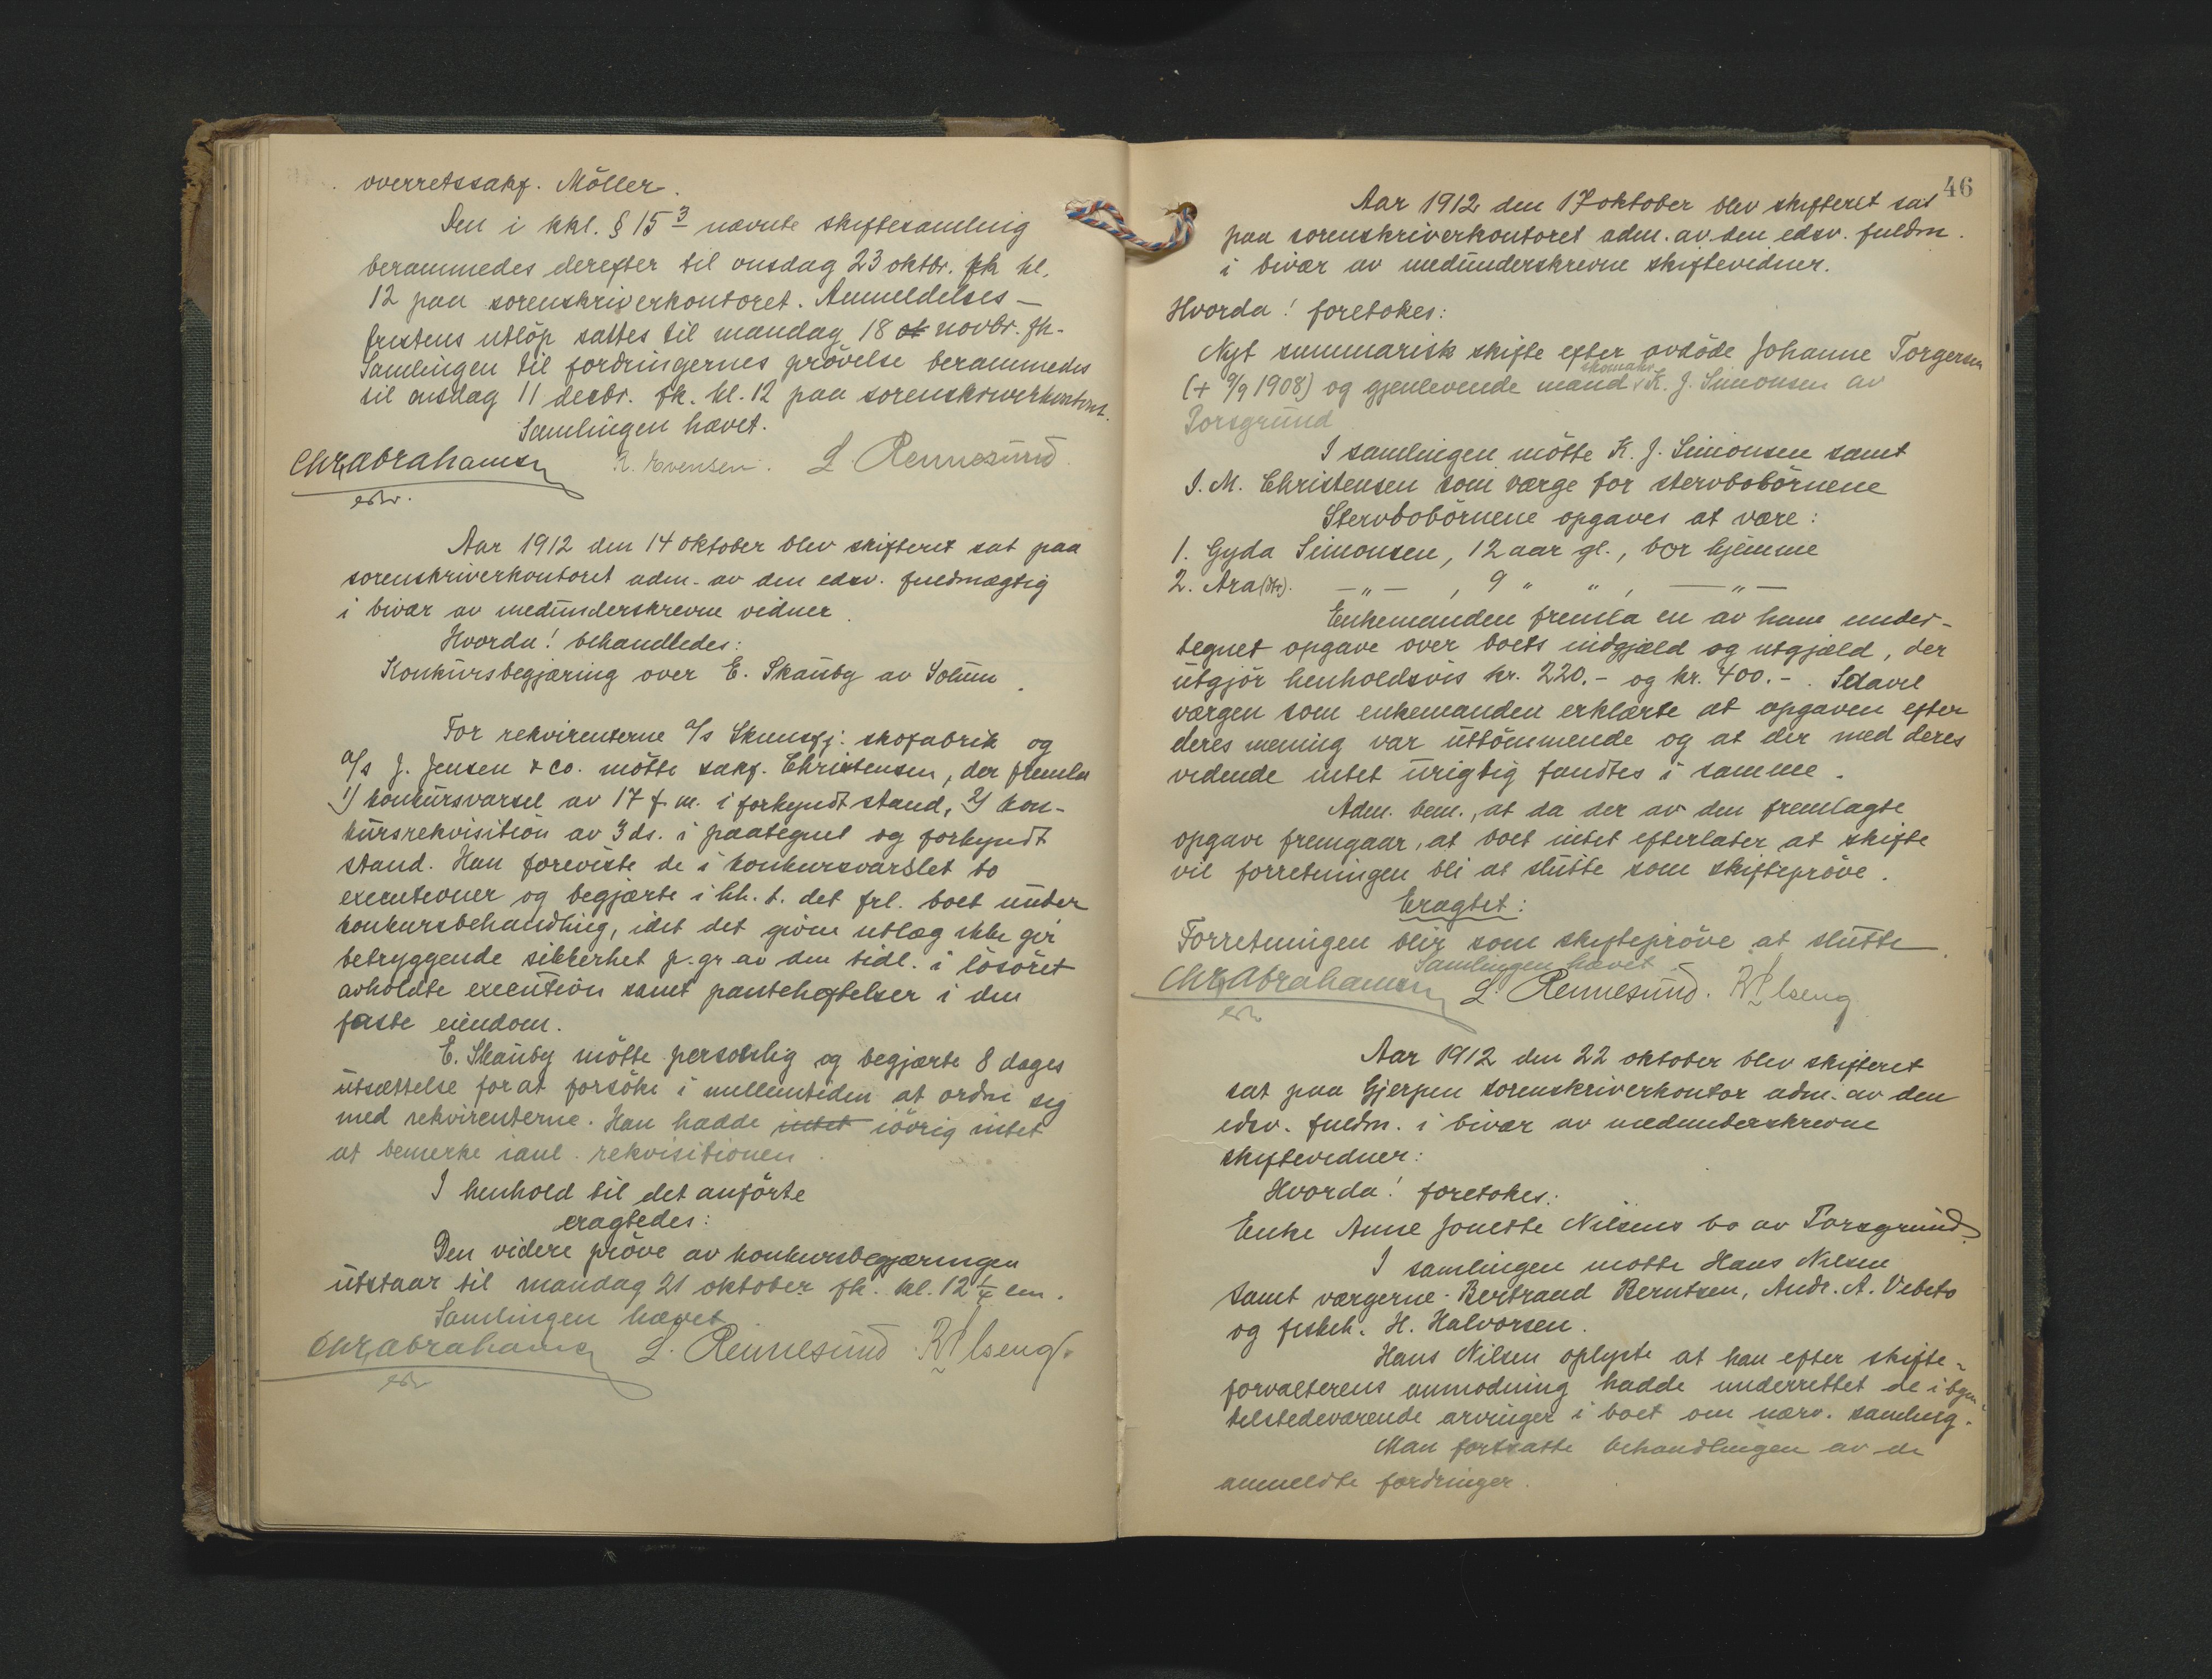 overretssakf. Möller.
Den i kkl. § 15³ nævnte skiftesamling
berammedes derefter til onsdag 23 oktbr. fk kl.
12 paa sorenskriverkontoret. Anmeldelses-
fristens utlöp sattes til mandag 18 ok novbr. fk.
Samlingen til fordringernes prövelse berammedes
til onsdag 11 decbr. fk. kl. 12 paa sorenskriverkontoret.
Samlingen hævet.
Chr Abrahamsen R. Evensen. L. Rennesund
edsv.
Aar 1912 den 14 oktober blev skifteret sat paa
sorenskriverkontoret adm. av den edsv. fuldmægtig
i bivær av medunderskrevne vidner.
Hvorda! behandledes:
Konkursbegjæring over E. Skauby av Solum.
For rekvirenterne A/s Skiensfj. skofabrik og
A/s J. Jensen & co. mötte sakf. Christensen, der fremla
1) konkursvarsel av 17 f. m. i forkyndt stand, 2) kon-
kursrekvisition av 3 ds. i paategnet og forkyndt
stand. Han foreviste de i konkursvarslet to
executioner og begjærte i hh. t. det frl. boet under
konkursbehandling, idet det givne utlæg ikke gir
betryggende sikkerhet p. gr av den tidl. i lösöret
avholdte execution samt panteheftelser i den
faste eiendom.
E. Skauby mötte personlig og begjærte 8 dages
utsættelse for at forsöke i mellemtiden at ordne sig
med rekvirenterne. Han hadde intet iövrig intet
at bemerke ianl. rekvisitionen.
I henhold til det anförte
eragtedes:
Den videre pröve av konkursbegjæringen
utstaar til mandag 21 oktober fk. kl. 12 1/4 em.
Samlingen hævet.
Chr Abrahamsen L. Rennesund
edsv
46
Aar 1912 den 17 oktober blev skifteret sat
paa sorenskriverkontoret adm. av den edsv. fuldm.
i bivær av medunderskrevne skiftevidner.
Hvorda! foretokes:
Nyt summarisk skifte efter avdöde Johanne Torgersen
skomaker
(+ 9/9 1908) og gjenlevende mand K. J. Simonsen av
Porsgrund
I samlingen mötte K. J. Simonsen samt
I. M. Christensen som værge for stervbobörnene
Stervbobörnene opgaves at være:
1. Gyda Simonsen, 12 aar gl., bor hjemme
2. Ara (dtr). —"— , 9 " " , —"—
Enkemanden fremla en av ham under-
tegnet opgave over boets indgjæld og utgjæld, der
utgjör henholdsvis kr. 220.- og kr. 400.-. Saavel
værgen som enkemanden erklærte at opgaven efter
deres mening var uttömmende og at der med deres
vidende intet urigtig fandtes i samme.
Adm. bem., at da der av den fremlagte
opgave fremgaar, at boet intet efterlater at skifte
vil forretningen bli at slutte som skiftepröve.
Eragtet:
Forretningen blir som skiftepröve at slutte.
Samlingen hævet.
Chr Abrahamsen L. Rennesund.
edsv
Aar 1912 den 22 oktober blev skifteret
sat paa Gjerpen sorenskriverkontor adm. av den
edsv. fuldm. i bivær av medunderskrevne
skiftevidner:
Hvorda! foretokes:
Enke Anne Jonette Nilsens bo av Porsgrund.
I samlingen mötte Hans Nilsen
samt værgerne Bertrand Berntsen, Andr. A. Vebeto
og fiskeh. H. Halvorsen.
Hans Nilsen oplyste at han efter skifte-
forvalterens anmodning hadde underrettet de i byen
tilstedeværende arvinger i boet om nærv. samling.
Man fortsatte behandlingen av de
anmeldte fordringer.